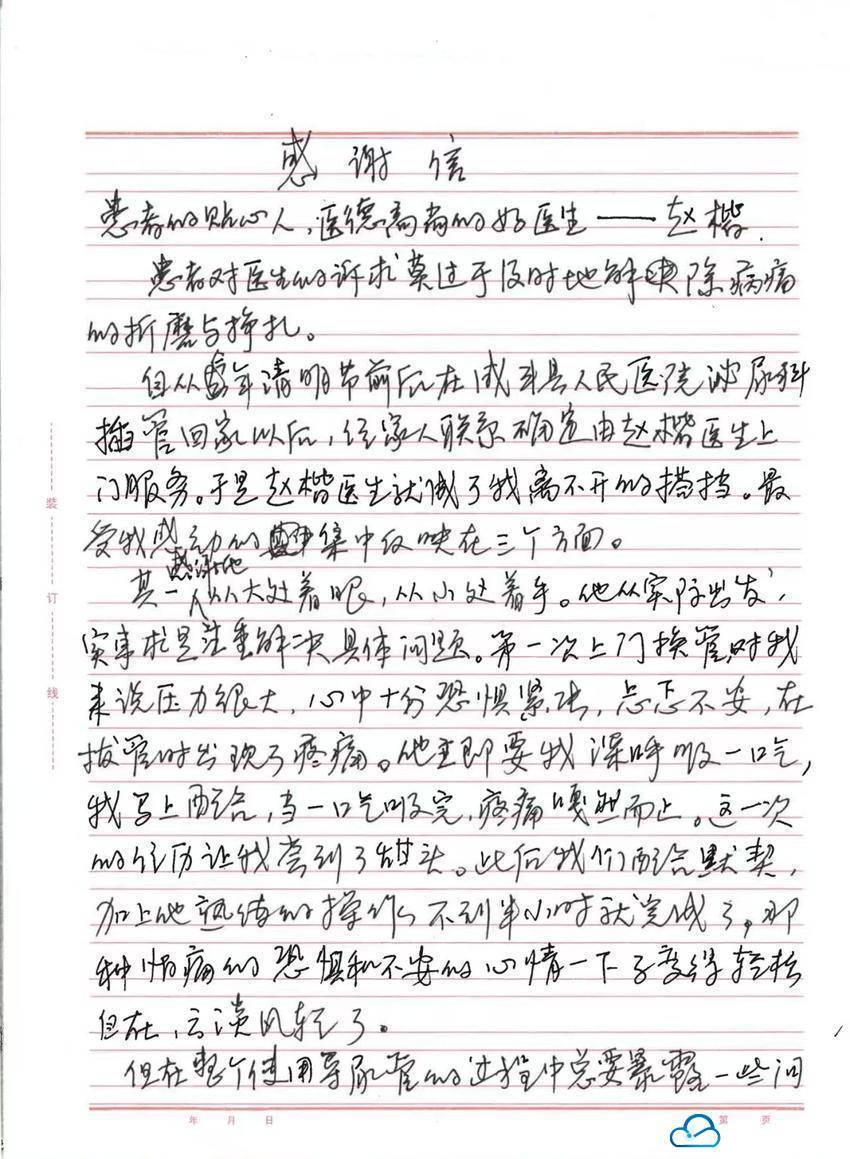 感谢信
患者的贴心人，医德高尚的好医生——赵楷.
患者对医生的诉求莫过于及时地解除病痛
的折磨与挣扎。
自从年清明节前后在成县人民医院泌尿科
插管回家以后，经家人联系确定由赵楷医生上
门服务。于是赵楷医生就成了我离不开的搭挡。最
受我感动的集中反映在三个方面。
感谢他
其一从大处着眼，从小处着手。他从实际出发，
实事求是注重解决具体问题。第一次上门换管，对我
来说压力很大，心中十分恐惧紧张，忐忑不安，在
拔管时出现了疼痛。他立即要我深呼吸一口气，
我马上配合，当一口气吸完，疼痛嘎然而止。这一次
的经历让我尝到了甜头。此后我们配合默契，
加上他熟练的操作，不到半小时就完成了。那
种怕痛的恐惧和不安的心情一下子变得轻松
自在，云淡风轻了。
但在整个使用导尿管的过程中总要暴露一些问
装
订
线
年 月 日
第 页